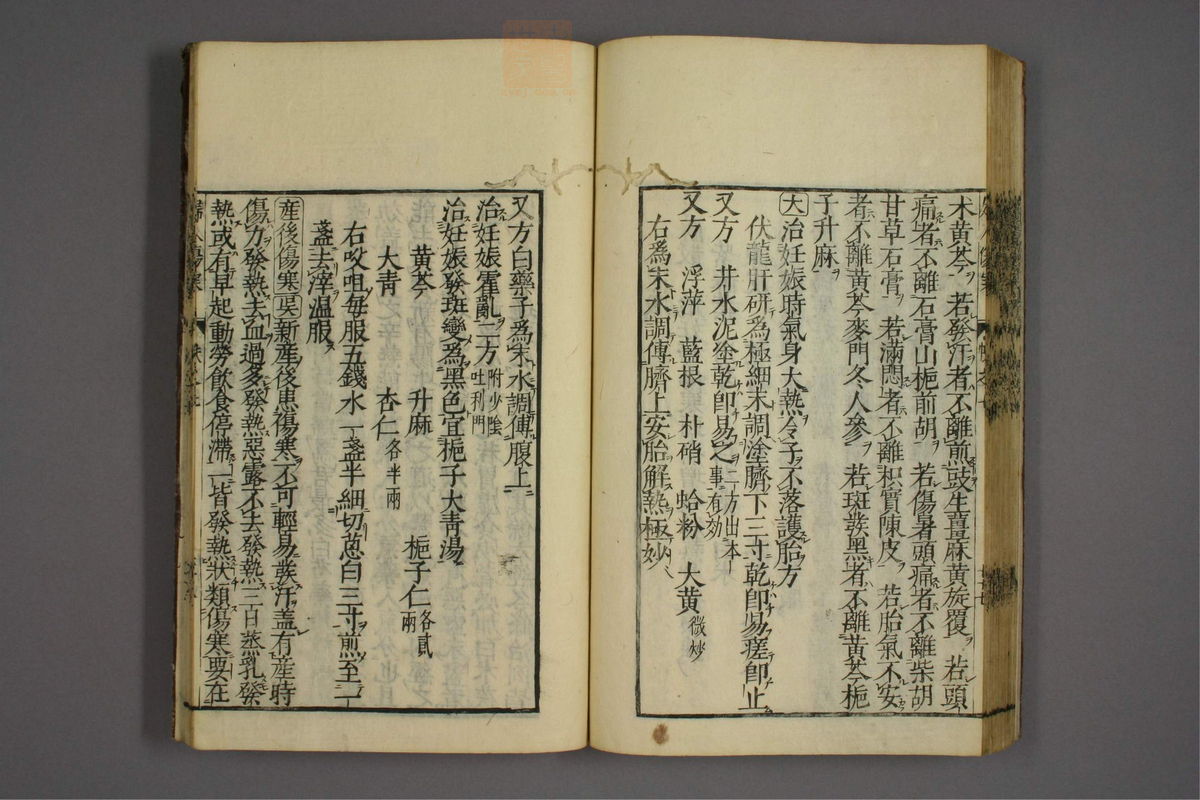 朮黃芩 若發汗者不離煎豉生薑麻黃旋覆 若頭
痛者不離石膏山梔前胡 若傷暑頭痛者不離柴胡
甘草石膏 若滿悶者不離枳實陳皮 若胎氣不安
者不離黃芩麥門冬人參 若斑發黑者不離黃芩梔
子升麻
大治妊娠時氣身大熱冷子不落護胎方
伏龍肝研爲極細末調塗臍下三寸乾卽易瘥卽止
又方 井水泥塗乾卽易之二方出本事有効
又方 浮萍 藍根 朴硝 蛤粉 大黃微炒
右爲末水調傅臍上安胎解熱極妙
又方白藥子爲末水調傅腹上
治妊娠霍亂二方附少陰吐利門
治妊娠發斑變爲黑色宜梔子大青湯
黃芩 升麻 梔子仁各貳兩
大青 杏仁各半兩
右㕮咀每服五錢水一盞半細切蔥白三寸煎至一
盞去滓溫服
產後傷寒吴新產後患傷寒不可輕易發汗蓋有產時
傷力發熱去血過多發熱惡露不去發熱三日蒸乳發
熱或有早起動勞飲食停滯一皆發熱狀類傷寒要在